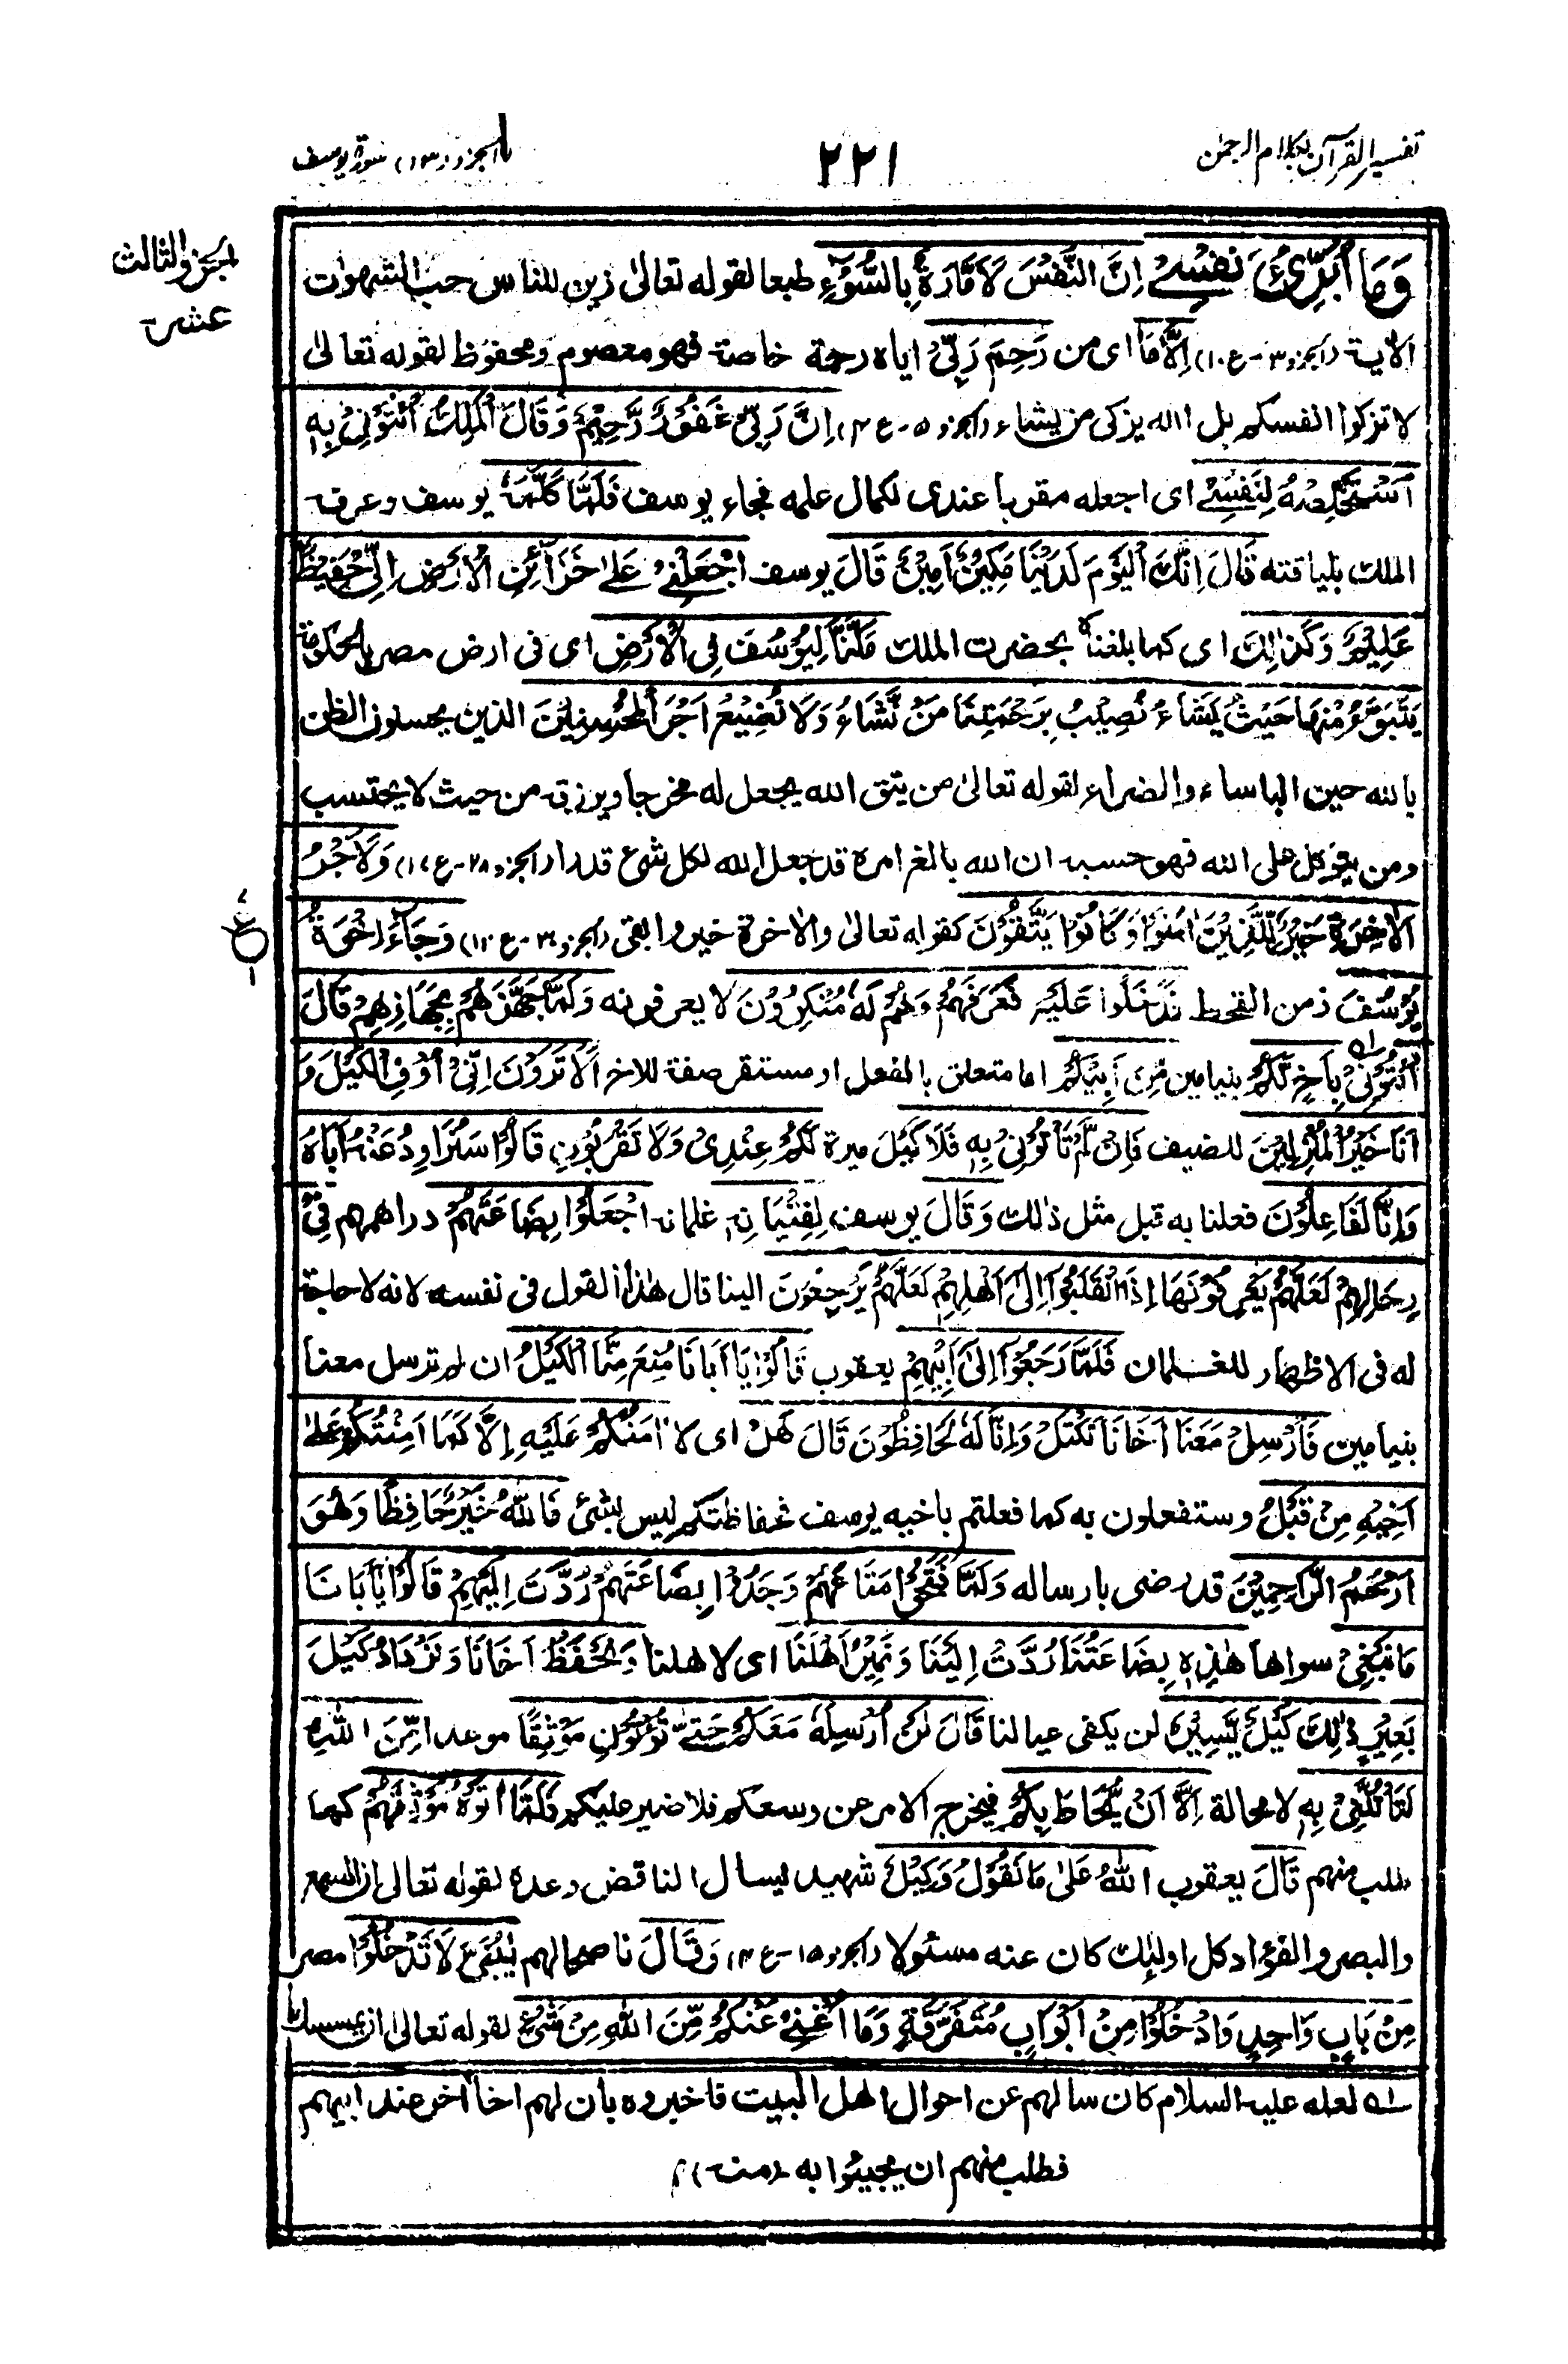 تفسير القرآن بكلام الرحمن
٢٢١
الجزء (١٣) سورة يوسف
الجزء الثالث
عشر
وَمَا أُبَرِّئُ نَفْسِي إِنَّ النَّفْسَ لَأَمَّارَةٌ بِالسُّوْءِ طبعا لقوله تعالى زين للناس حب الشهوات
الاية (الجزء ٣ - ع ١٠) إِلَّا مَا اى من رَحِمَ رَبِّيْ اياه رحمة خاصة فهو معصوم ومحفوظ لقوله تعالىٰ
لا تزكوا انفسكم بل الله يزكى من يشاء (الجزء ٥ - ع ٤) إِنَّ رَبِّيْ غَفُوْرٌ رَّحِيْمٌ وَقَالَ الْمَلِكُ ائْتُوْنِيْ بِهِ
أَسْتَخْلِصْهُ لِنَفْسِيْ اى اجعله مقربا عندى لكمال علمه فجاء يوسف فَلَمَّا كَلَّمَهٗ يوسف وعرف
الملك بلياقته قَالَ اِنَّكَ الْيَوْمَ لَدَيْنَا مَكِيْنٌ اَمِيْنٌ قَالَ يوسف اجْعَلْنِيْ عَلٰى خَزَآئِنِ الْاَرْضِ اِنِّيْ حَفِيْظٌ
عَلِيْمٌ وَكَذٰلِكَ اى كما بلغناه بحضرت الملك مَكَّنَّا لِيُوْسُفَ فِي الْاَرْضِ اى فى ارض مصر بالحكومة
يَتَبَوَّءُ مِنْهَا حَيْثُ يَشَاءُ نُصِيْبُ بِرَحْمَتِنَا مَنْ نَّشَاءُ وَلَا نُضِيْعُ اَجْرَ الْمُحْسِنِيْنَ الذين يحسنون الظن
بالله حين الباساء والضراء لقوله تعالىٰ من يتق الله يجعل له مخرجا ويرزقه من حيث لا يحتسب
ومن يتوكل على الله فهو حسبه ان الله بالغ امره قد جعل الله لكل شئ قدرا (الجزء ٢٨ - ع ١٧) وَلَاَجْرُ
الْاٰخِرَةِ خَيْرٌ لِّلَّذِيْنَ اٰمَنُوْا وَكَانُوْا يَتَّقُوْنَ كقوله تعالىٰ والاخرة خير وابقى (الجزء ٣٠ - ع ١٢) وَجَاءَ اِخْوَةُ
يُوْسُفَ زمن القحط فَدَخَلُوْا عَلَيْهِ فَعَرَفَهُمْ وَهُمْ لَهٗ مُنْكِرُوْنَ لا يعرفونه وَلَمَّا جَهَّزَهُمْ بِجَهَازِهِمْ قَالَ
ائْتُوْنِيْ بِاَخٍ لَّكُمْ بنيامين مِّنْ اَبِيْكُمْ اما متعلق بالفعل او مستقر صفة للاخ اَلَا تَرَوْنَ اِنِّيْ اُوْفِي الْكَيْلَ وَ
اَنَا خَيْرُ الْمُنْزِلِيْنَ للضيف فَاِنْ لَّمْ تَاْتُوْنِيْ بِهِ فَلَا كَيْلَ ميرة لَكُمْ عِنْدِيْ وَلَا تَقْرَبُوْنِ قَالُوْا سَنُرَاوِدُ عَنْهُ اَبَاهُ
وَاِنَّا لَفَاعِلُوْنَ فعلنا به قبل مثل ذٰلك وَقَالَ يوسف لِفِتْيَانِهِ غلمانه اجْعَلُوْا بِضَاعَتَهُمْ دراهمهم فِيْ
رِحَالِهِمْ لَعَلَّهُمْ يَعْرِفُوْنَهَا اِذَا انْقَلَبُوْا اِلٰى اَهْلِهِمْ لَعَلَّهُمْ يَرْجِعُوْنَ الينا قال هذا القول فى نفسه لانه لا حاجة
له فى الاظهار للغلمان فَلَمَّا رَجَعُوْا اِلٰى اَبِيْهِمْ يعقوب قَالُوْا يَا اَبَانَا مُنِعَ مِنَّا الْكَيْلُ ان لم ترسل معنا
بنيامين فَاَرْسِلْ مَعَنَا اَخَانَا نَكْتَلْ وَاِنَّا لَهٗ لَحَافِظُوْنَ قَالَ هَلْ اى لا اٰمَنُكُمْ عَلَيْهِ اِلَّا كَمَا اَمِنْتُكُمْ عَلٰى
اَخِيْهِ مِنْ قَبْلُ وستفعلون به كما فعلتم باخيه يوسف فحفاظتكم ليس بشئ فَاللهُ خَيْرٌ حَافِظًا وَهُوَ
اَرْحَمُ الرَّاحِمِيْنَ قد رضى بارساله وَلَمَّا فَتَحُوْا مَتَاعَهُمْ وَجَدُوْا بِضَاعَتَهُمْ رُدَّتْ اِلَيْهِمْ قَالُوْا يَا اَبَانَا
مَا نَبْغِيْ سواها هٰذِهِ بِضَاعَتُنَا رُدَّتْ اِلَيْنَا وَنَمِيْرُ اَهْلَنَا اى لاهلنا وَنَحْفَظُ اَخَانَا وَنَزْدَادُ كَيْلَ
بَعِيْرٍ ذٰلِكَ كَيْلٌ يَّسِيْرٌ لن يكفى عيالنا قَالَ لَنْ اُرْسِلَهٗ مَعَكُمْ حَتّٰى تُؤْتُوْنِ مَوْثِقًا موعدا مِّنَ اللهِ
لَتَاْتُنَّنِيْ بِهِ لا محالة اِلَّا اَنْ يُّحَاطَ بِكُمْ فيخرج الامر عن وسعكم فلا ضير عليكم فَلَمَّا اٰتَوْهُ مَوْثِقَهُمْ كما
طلب منهم قَالَ يعقوب اللهُ عَلٰى مَا نَقُوْلُ وَكِيْلٌ شهيد ليسال الناقض وعده لقوله تعالى ان السمع
والبصر والفؤاد كل اولئك كان عنه مسئولا (الجزء ١٥ - ع ٤) وَقَالَ ناصحا لهم يٰبَنِيَّ لَا تَدْخُلُوْا مصر
مِنْ بَابٍ وَّاحِدٍ وَادْخُلُوْا مِنْ اَبْوَابٍ مُّتَفَرِّقَةٍ وَمَا اُغْنِيْ عَنْكُمْ مِّنَ اللهِ مِنْ شَيْءٍ لقوله تعالىٰ ان يمسسك
لعله عليه السلام كان سالهم عن احوال اهل البيت فاخبروه بان لهم اخا اٰخر عند ابيهم
فطلب منهم ان يجيئوا به (منه)